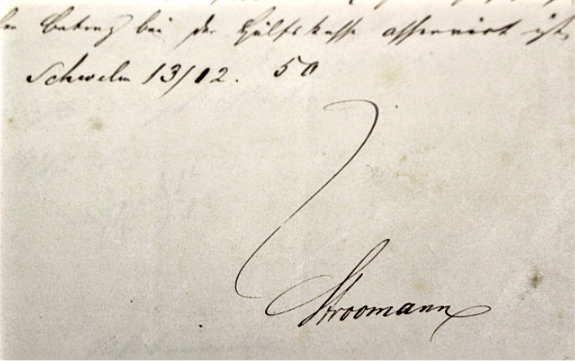 Betrag bei der Hülfskasse asservirt ist,
Schwelm 13/12. 50
Stroomann